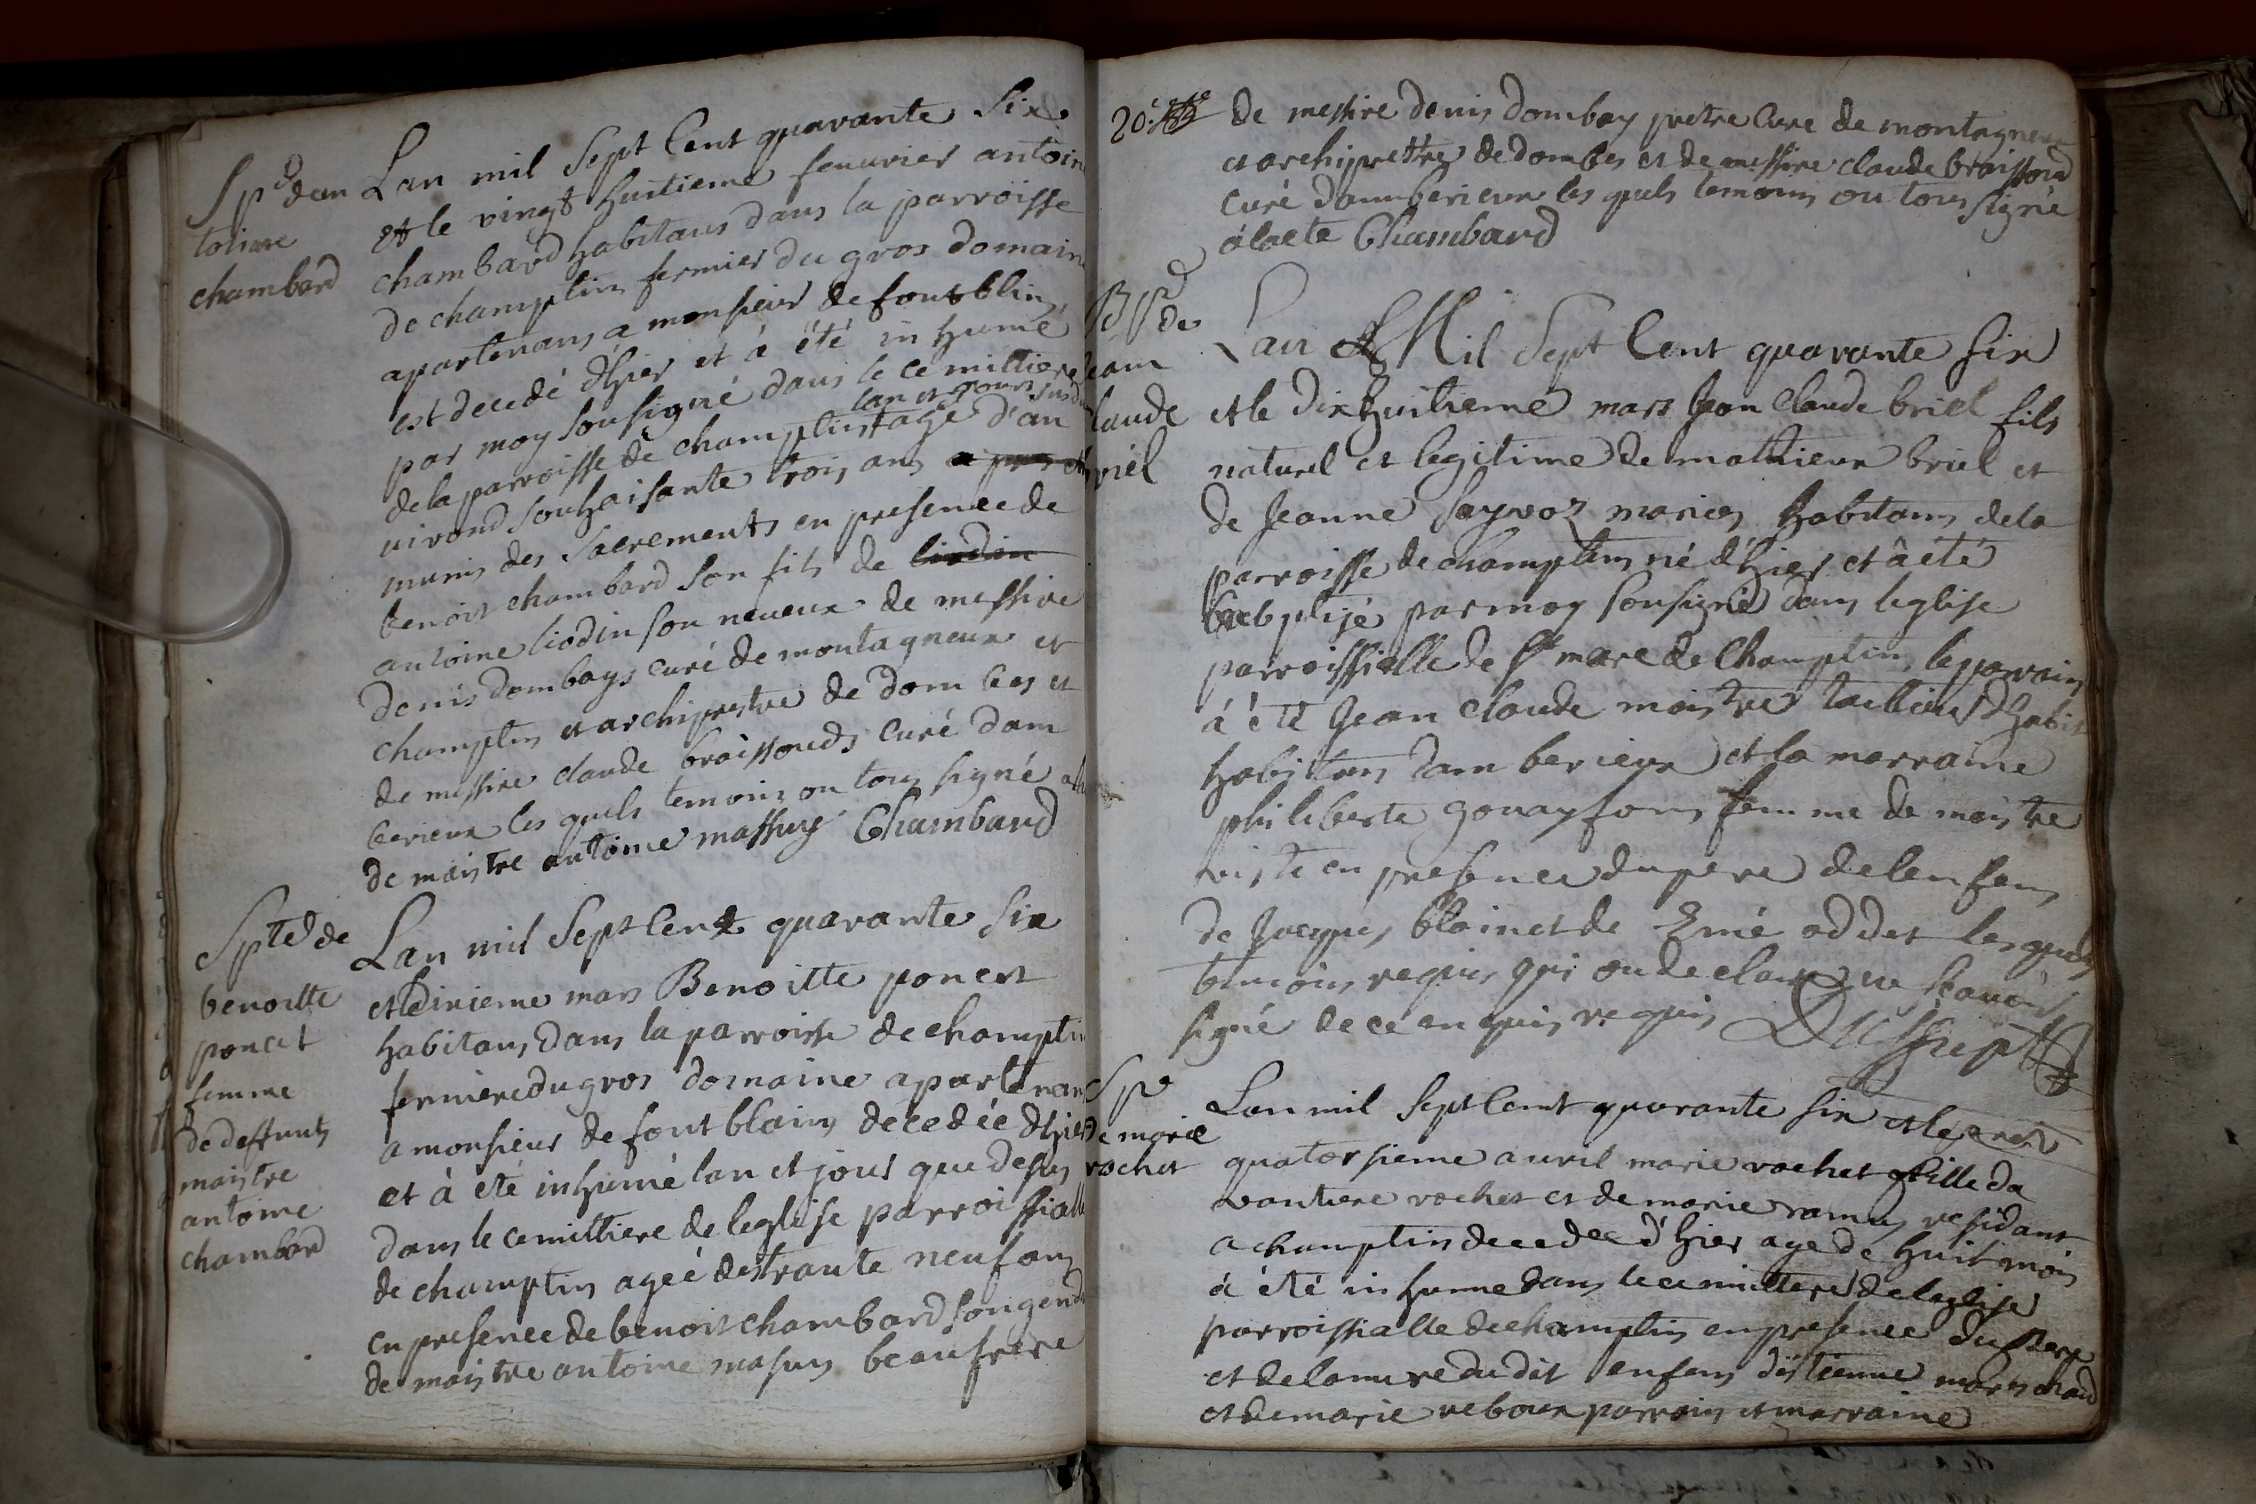 Sp^e dan
toliene
chambard
Lan mil Sept Cent quarante Six
et le vingt huitieme feuvrier antoin
chambard habitans dans la parroisse
de champtin fermier du gros domain
apartenans a monsieur de fontblin
est decedé dhier et à été in humé
par moy sousigné dans le cemittiere
lan et jour susd
de la parroisse de champtin agé d'an
uirond souhaisante trois ans a pres
munis des Sacrements en presence de
benoist chambard son fils de liodin
antoine liodin son neueux de messire
denis dombays curé de montagneux et
champtin et archiprestre de dombes et
de messire claude braissouds curé dam
berieux les quels temoins on tous signé
de maistre antoine massuy Chambard
Spte^d de
benoitte
poncet
femme
de deffunts
maistre
antoine
chambard
Lan mil Sept Cent quarante Six
et dixieme mars Benoitte poncet
habitans dans la parroisse de champtin
fermiere du gros domaine apartenan
a monsieur de fontblains decedée dhier
et à été inhumé lan et jour que desus
dans le cemittiere de leglise parroissialle
de champtin ageé de traute neuf ans
en presence de benoist chambard son gend
de maistre antoine masuy beaufrere
20^e
de messire denis dombay pretre Cure de montagneux
et archiprettre de dombes et de messire claude braissoud
curé dammberieux les quels temoins on tous signé
a lacte Chambard
Bp^e de
jean
claude
briel
Lan Mil Sept Cent quarante six
et le dixhuitieme mars Jean claude briel fils
naturel et legitime de mathieux briel et
de Jeanne Sayvoz maries habitans de la
parroisse de champtin né dhier et à été
babptisé par moy sousigné dans leglise
parroissialle de St marc de Champtin le parrain
à été Jean claude maistre taillieur dhabit
habitans dam berieux et la marraine
philiberte gouayfons femme de maistre
viste en presence du pere de lenfans
de Jacques blain et de Emé oddet lesquels
temoins requis qui on declaré ne scavoir
signé de ce enquis requis
Sp^e
de marie
rochet
Lan mil Sept Cent quarante six et le
quatorsieme auvril marie rochet fille da
vantiere rochet et de marie ramus residant
a champtin decedee d'hier agé de huit mois
à été inhumé dans le cemittere de leglise
parroissialle de champtin en presence du Pere
et de la mere du dit enfans d'ëstienne mareschaud
et de marie reboux parrain et marraine